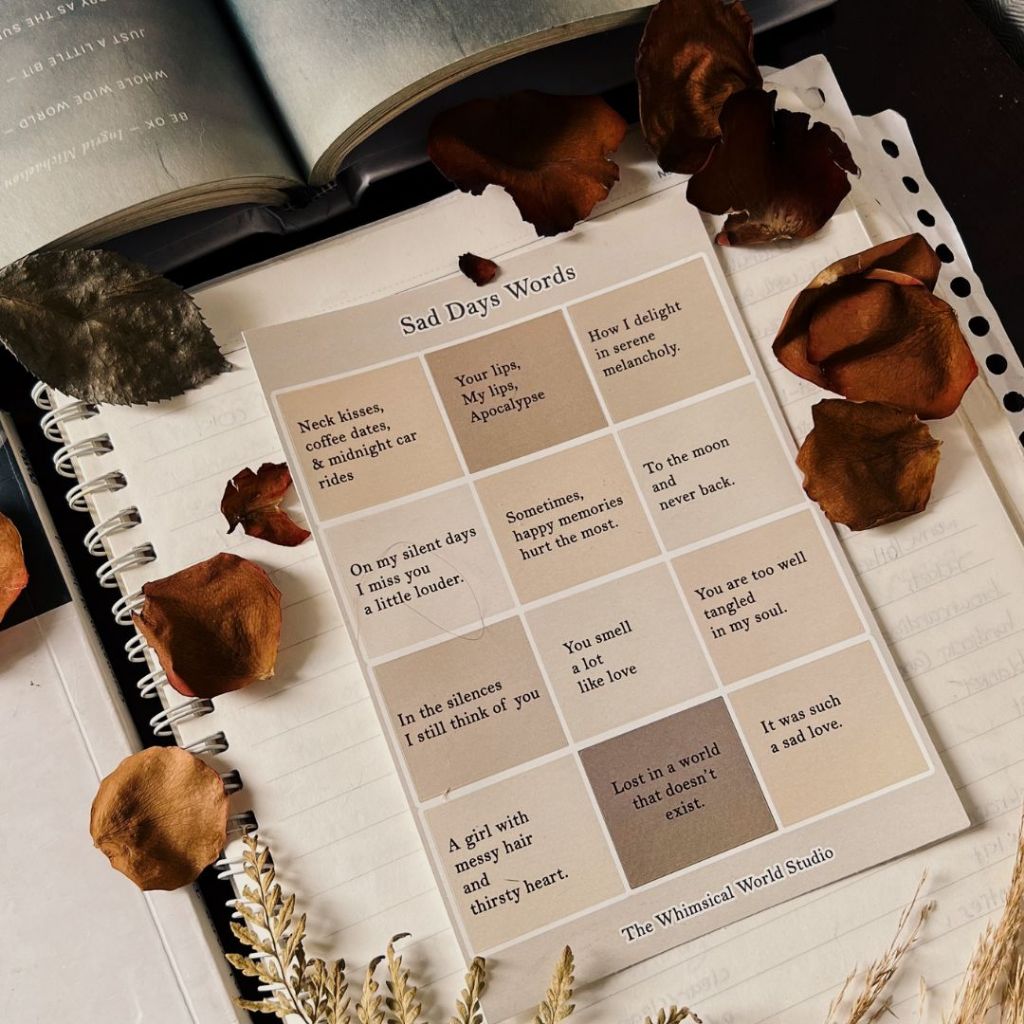 JUST A LITTLE BIT —
WHOLE WIDE WORLD —
BE OK — Ingrid Michaelson
Sad Days Words
Neck kisses,
coffee dates,
& midnight car
rides
Your lips,
My lips,
Apocalypse
How I delight
in serene
melancholy.
On my silent days
I miss you
a little louder.
Sometimes,
happy memories
hurt the most.
To the moon
and
never back.
In the silences
I still think of you
You smell
a lot
like love
You are too well
tangled
in my soul.
A girl with
messy hair
and
thirsty heart.
Lost in a world
that doesn't
exist.
It was such
a sad love.
The Whimsical World Studio